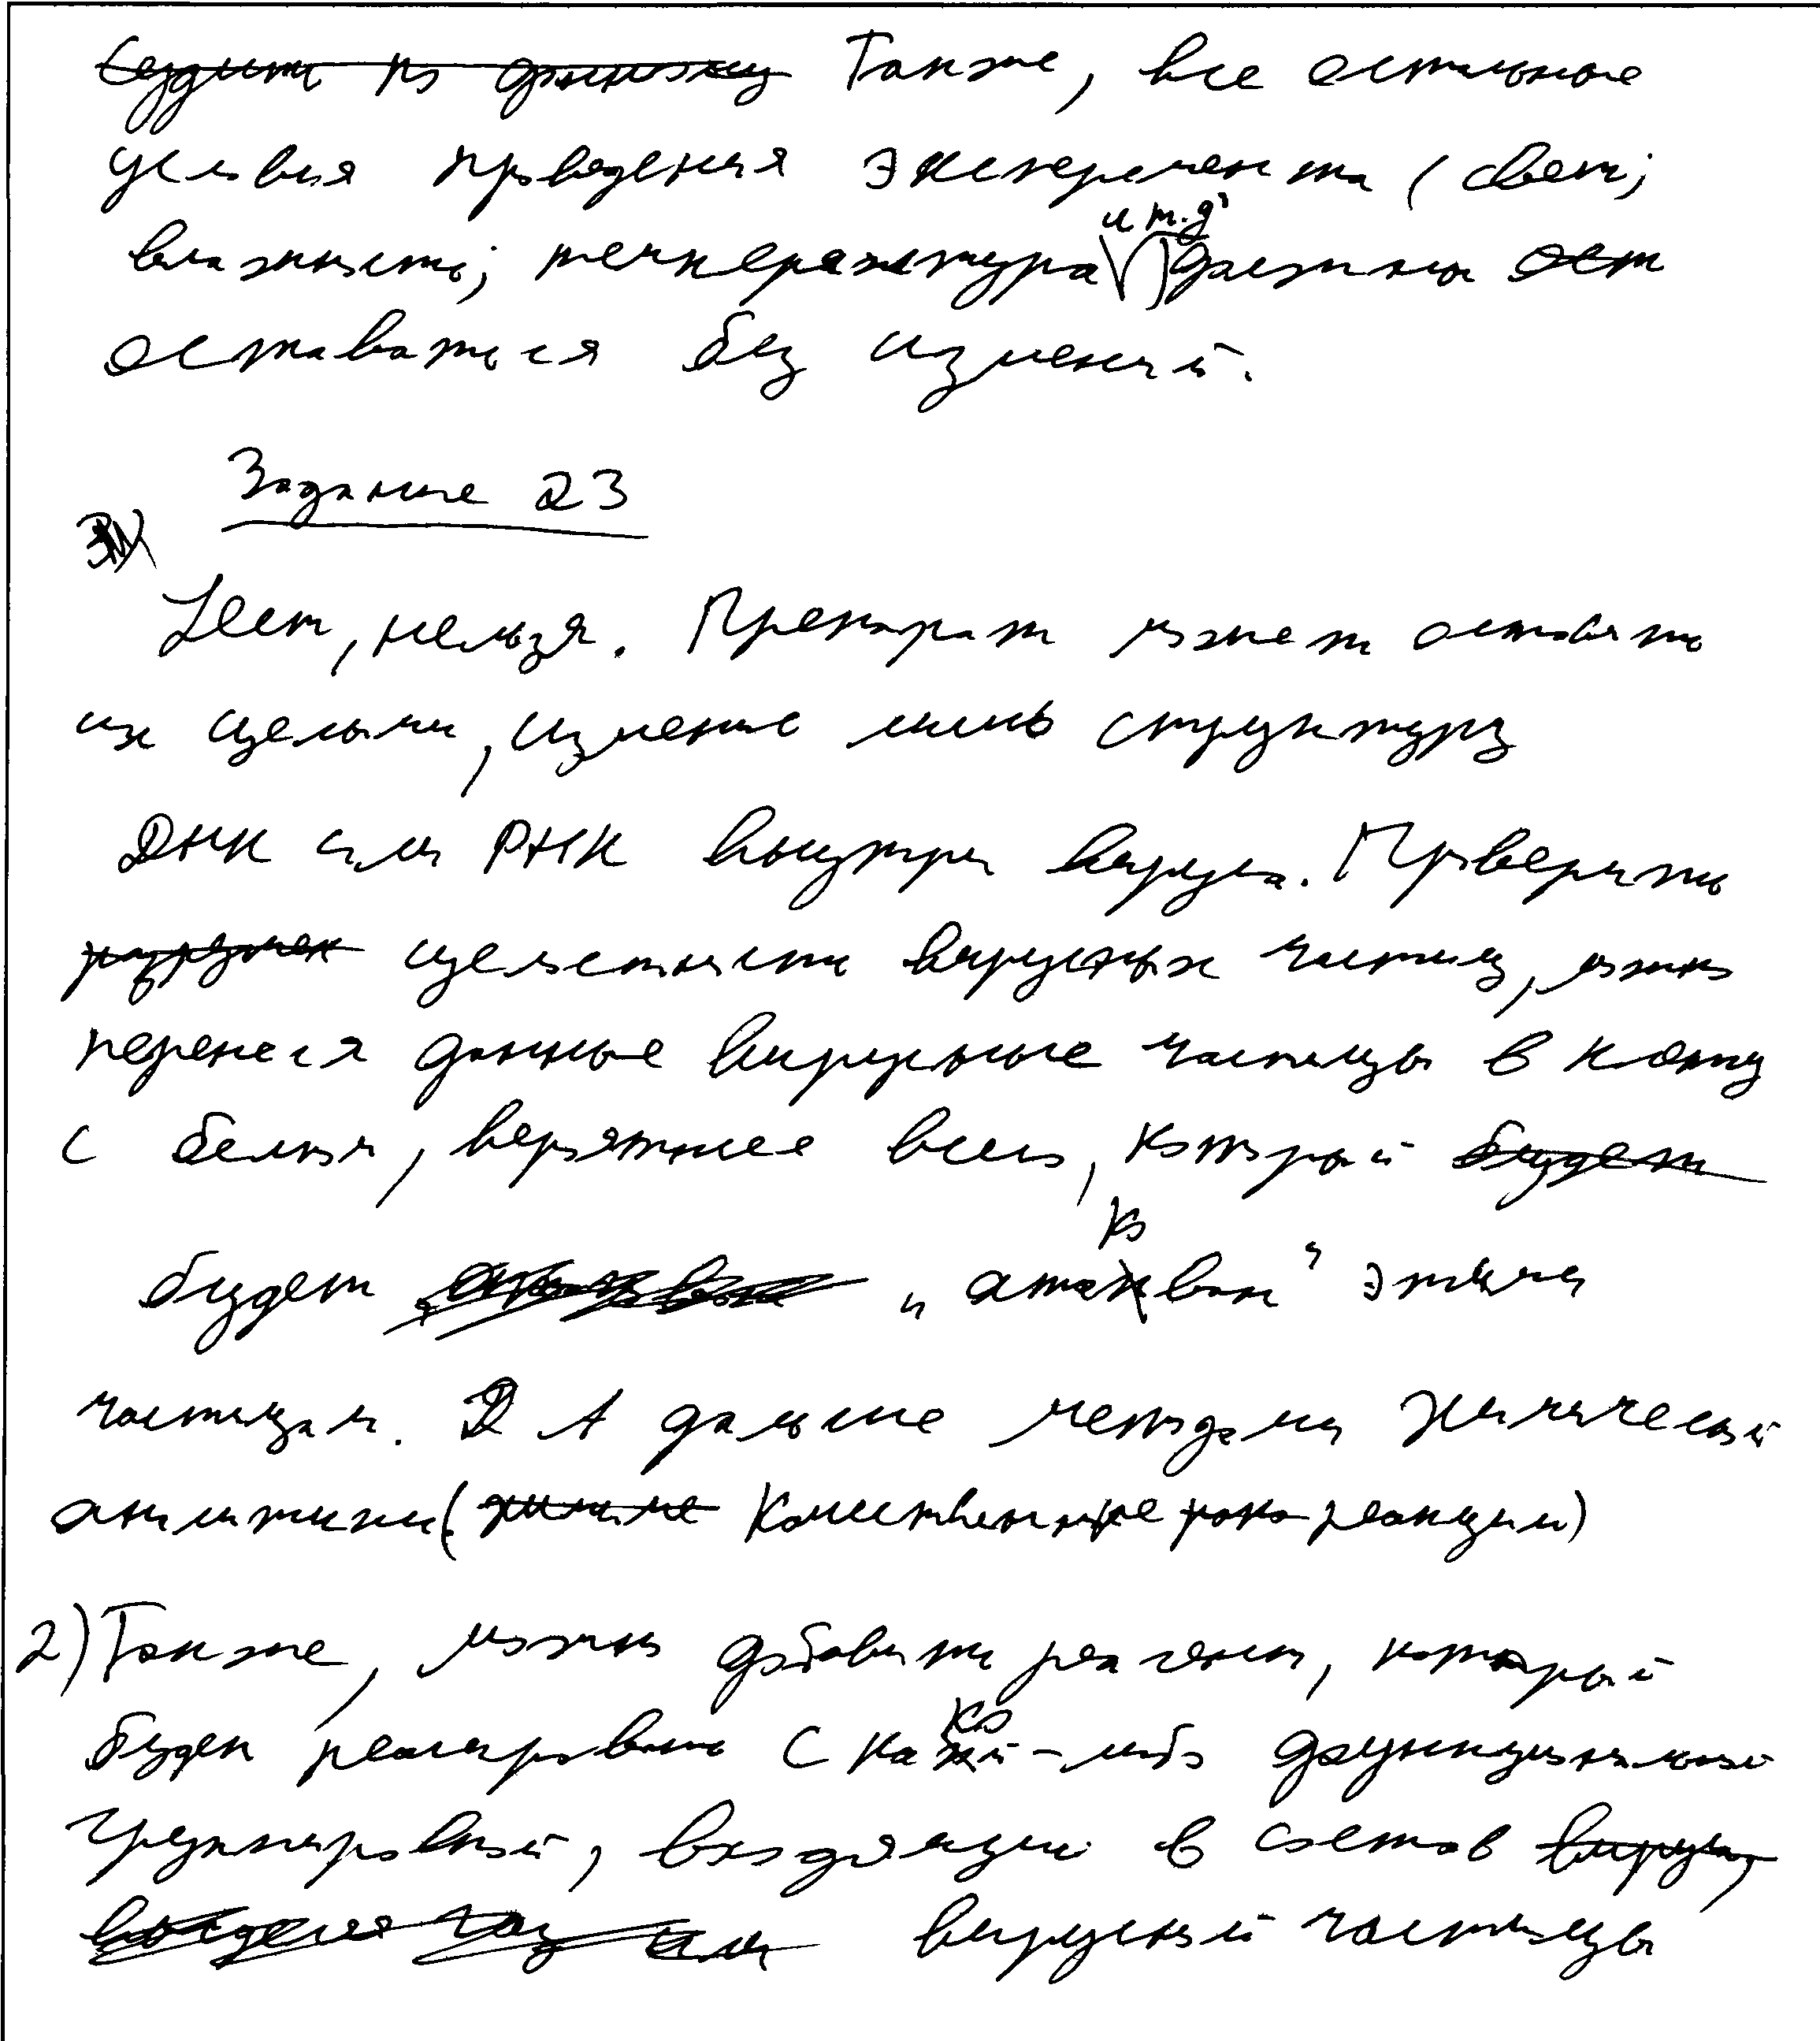 Также, все остальные
условия проведения эксперимента (свет;
влажность; температура и т.д) должны ост
оставаться без изменений.
Задание 23
Нет, нельзя. Препарат может оставить
их целыми, изменив лишь структуру
ДНК или РНК внутри вируса. Проверить
целостность вирусных частиц, можно
перенеся данные вирусные частицы в колбу
с белком, вероятнее всего, который будет
будет "атакован" этими
частицами. А дальше методами химической
аналитики (качественные реакции)
2) Также, можно добавить реагент, который
будет реагировать с какой-либо функциональной
группировкой, входящей в состав вируса,
вирусной частицы